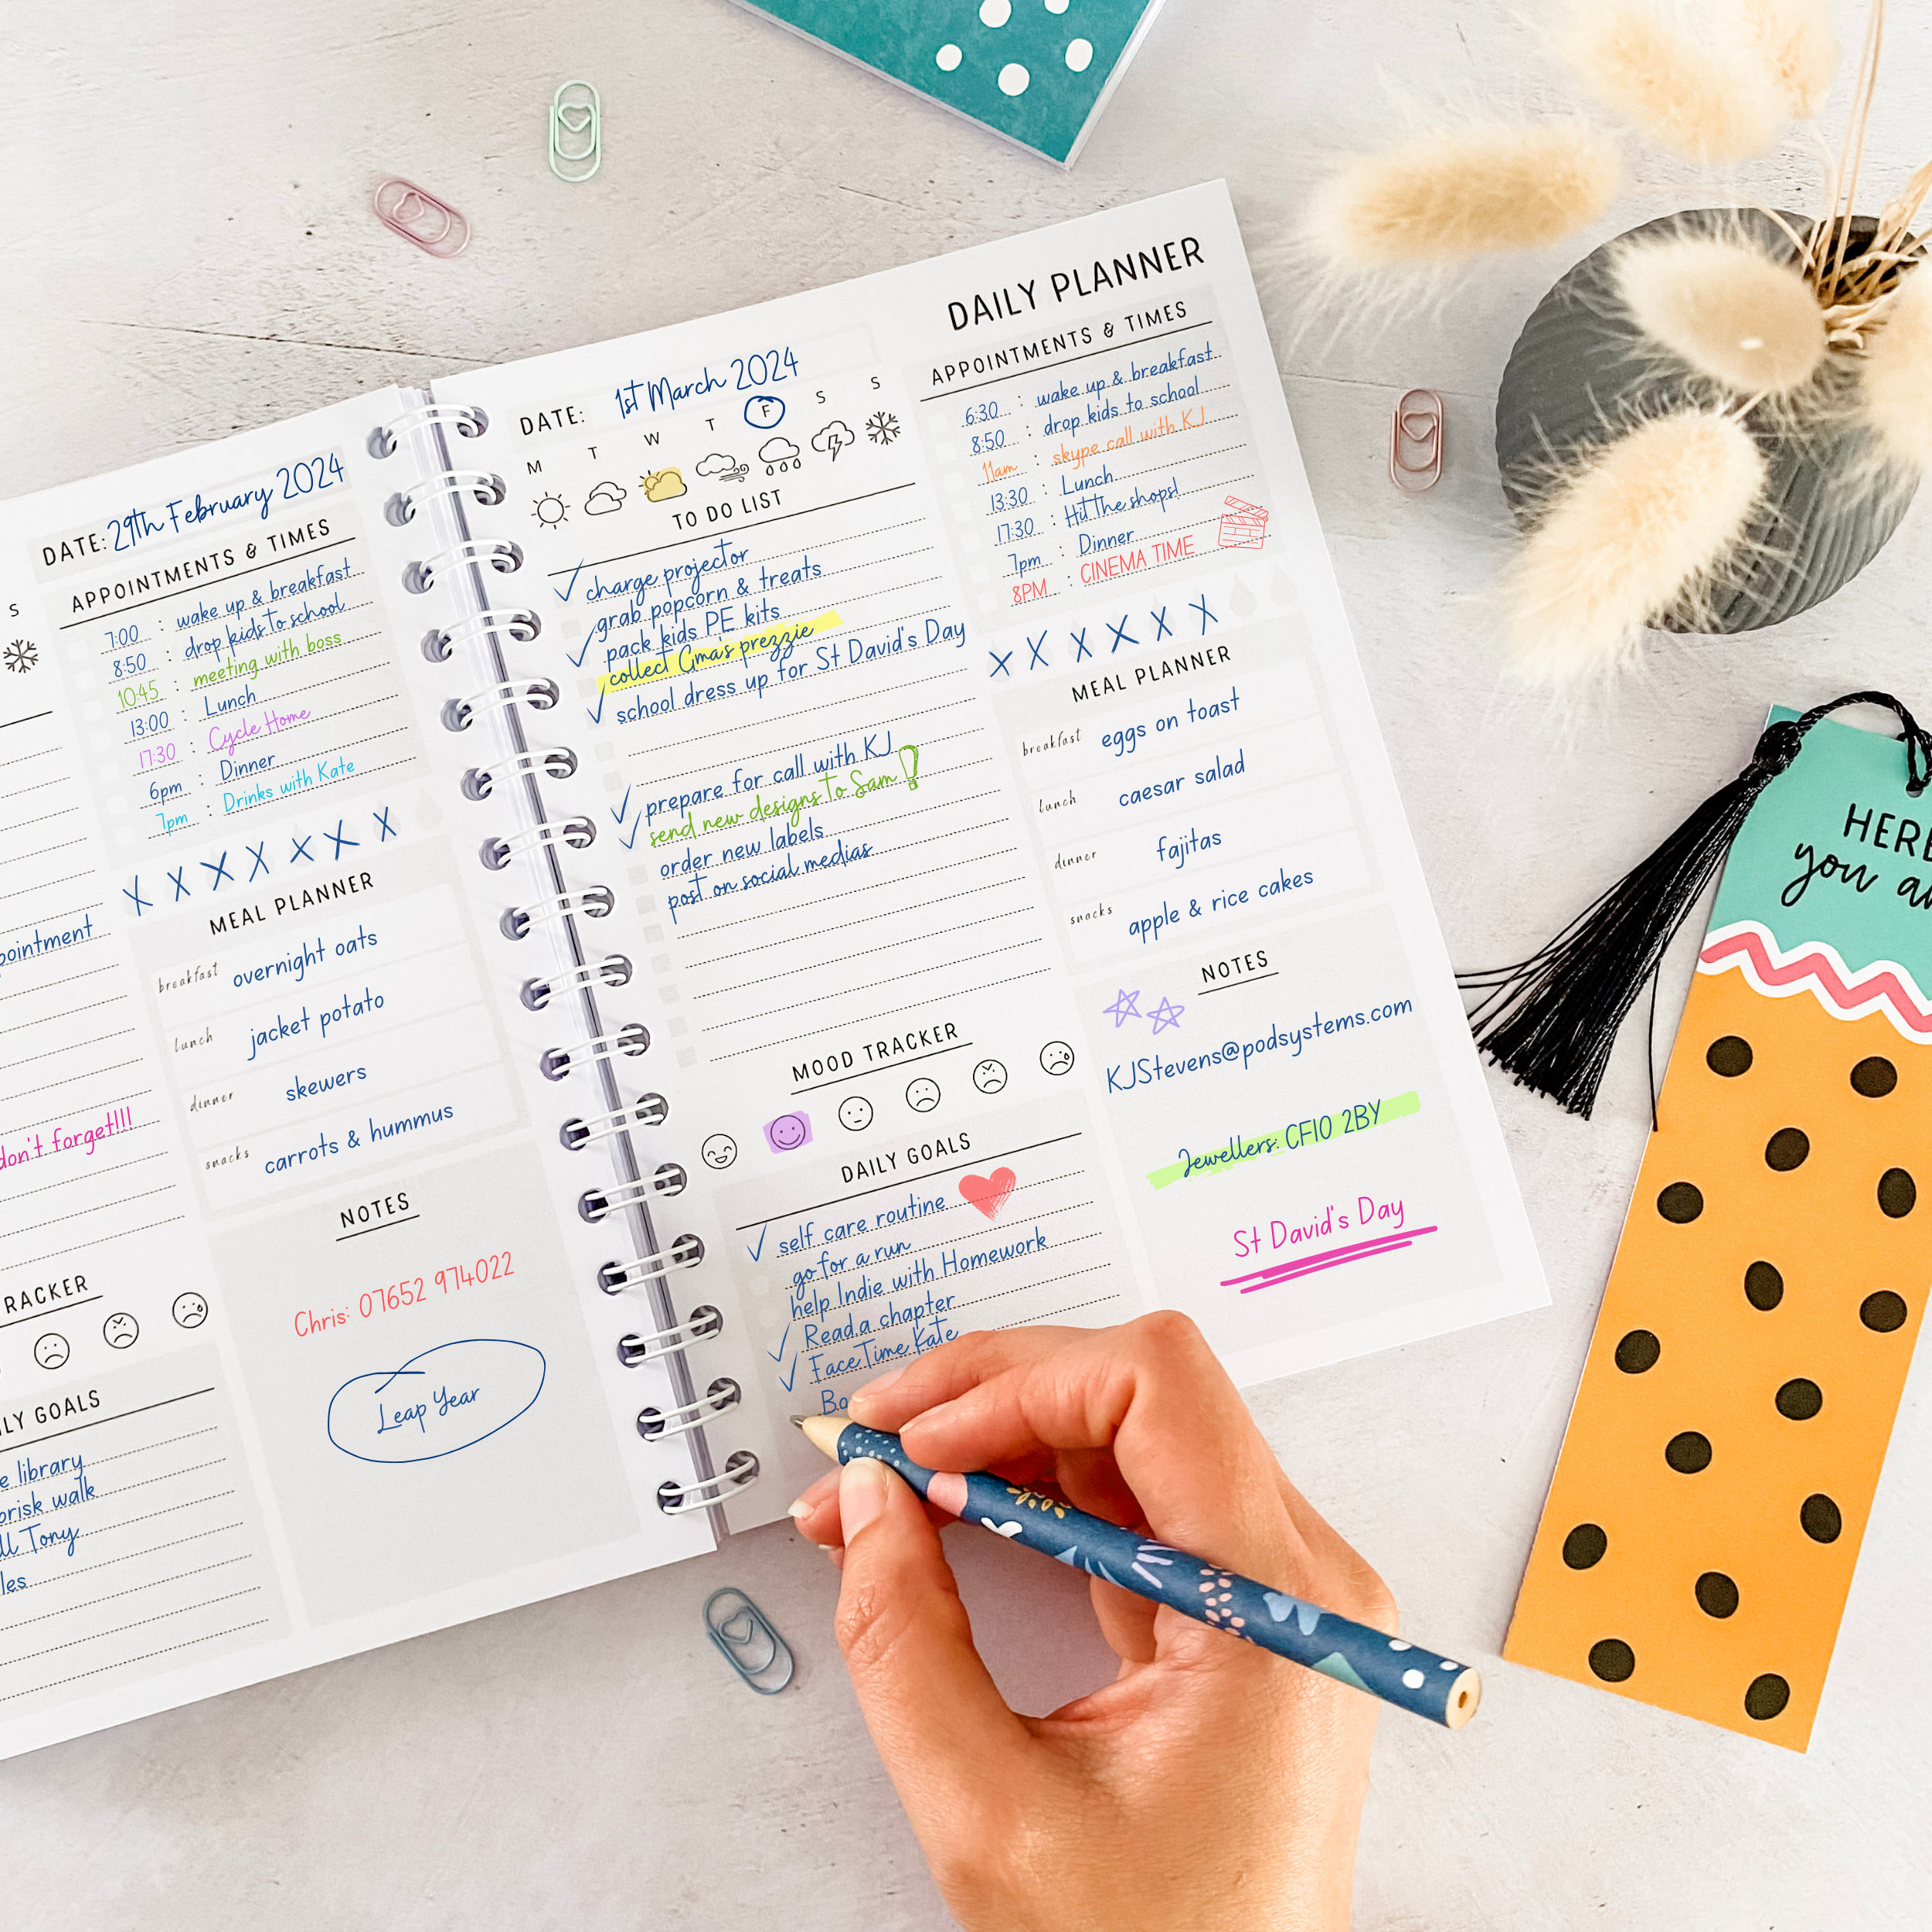 DATE: 29th February 2024
S
APPOINTMENTS & TIMES
7:00 : wake up & breakfast
8:50 : drop kids to school
10:45 : meeting with boss
13:00 : Lunch
17:30 : Cycle Home
6pm : Dinner
7pm : Drinks with Kate
X X X X X X X
MEAL PLANNER
breakfast overnight oats
lunch jacket potato
dinner skewers
snacks carrots & hummus
NOTES
Chris: 07652 974022
Leap Year
don't forget!!!
library
brisk walk
Tony
GOALS
DAILY PLANNER
DATE: 1st March 2024
M T W T F S S
TO DO LIST
charge projector
grab popcorn & treats
pack kids PE kits
collect Gma's prezzie
school dress up for St David's Day
prepare for call with KJ
send new designs to Sam!
order new labels
post on social medias
MOOD TRACKER
DAILY GOALS
self care routine
go for a run
help Indie with Homework
Read a chapter
FaceTime Kate
APPOINTMENTS & TIMES
6:30 : wake up & breakfast
8:50 : drop kids to school
11am : skype call with KJ
13:30 : Lunch
17:30 : Hit the shops!
7pm : Dinner
8PM : CINEMA TIME
X X X X X X
MEAL PLANNER
breakfast eggs on toast
lunch caesar salad
dinner fajitas
snacks apple & rice cakes
NOTES
KJStevens@podsystems.com
Jewellers: CF10 2BY
St David's Day
HERE
you